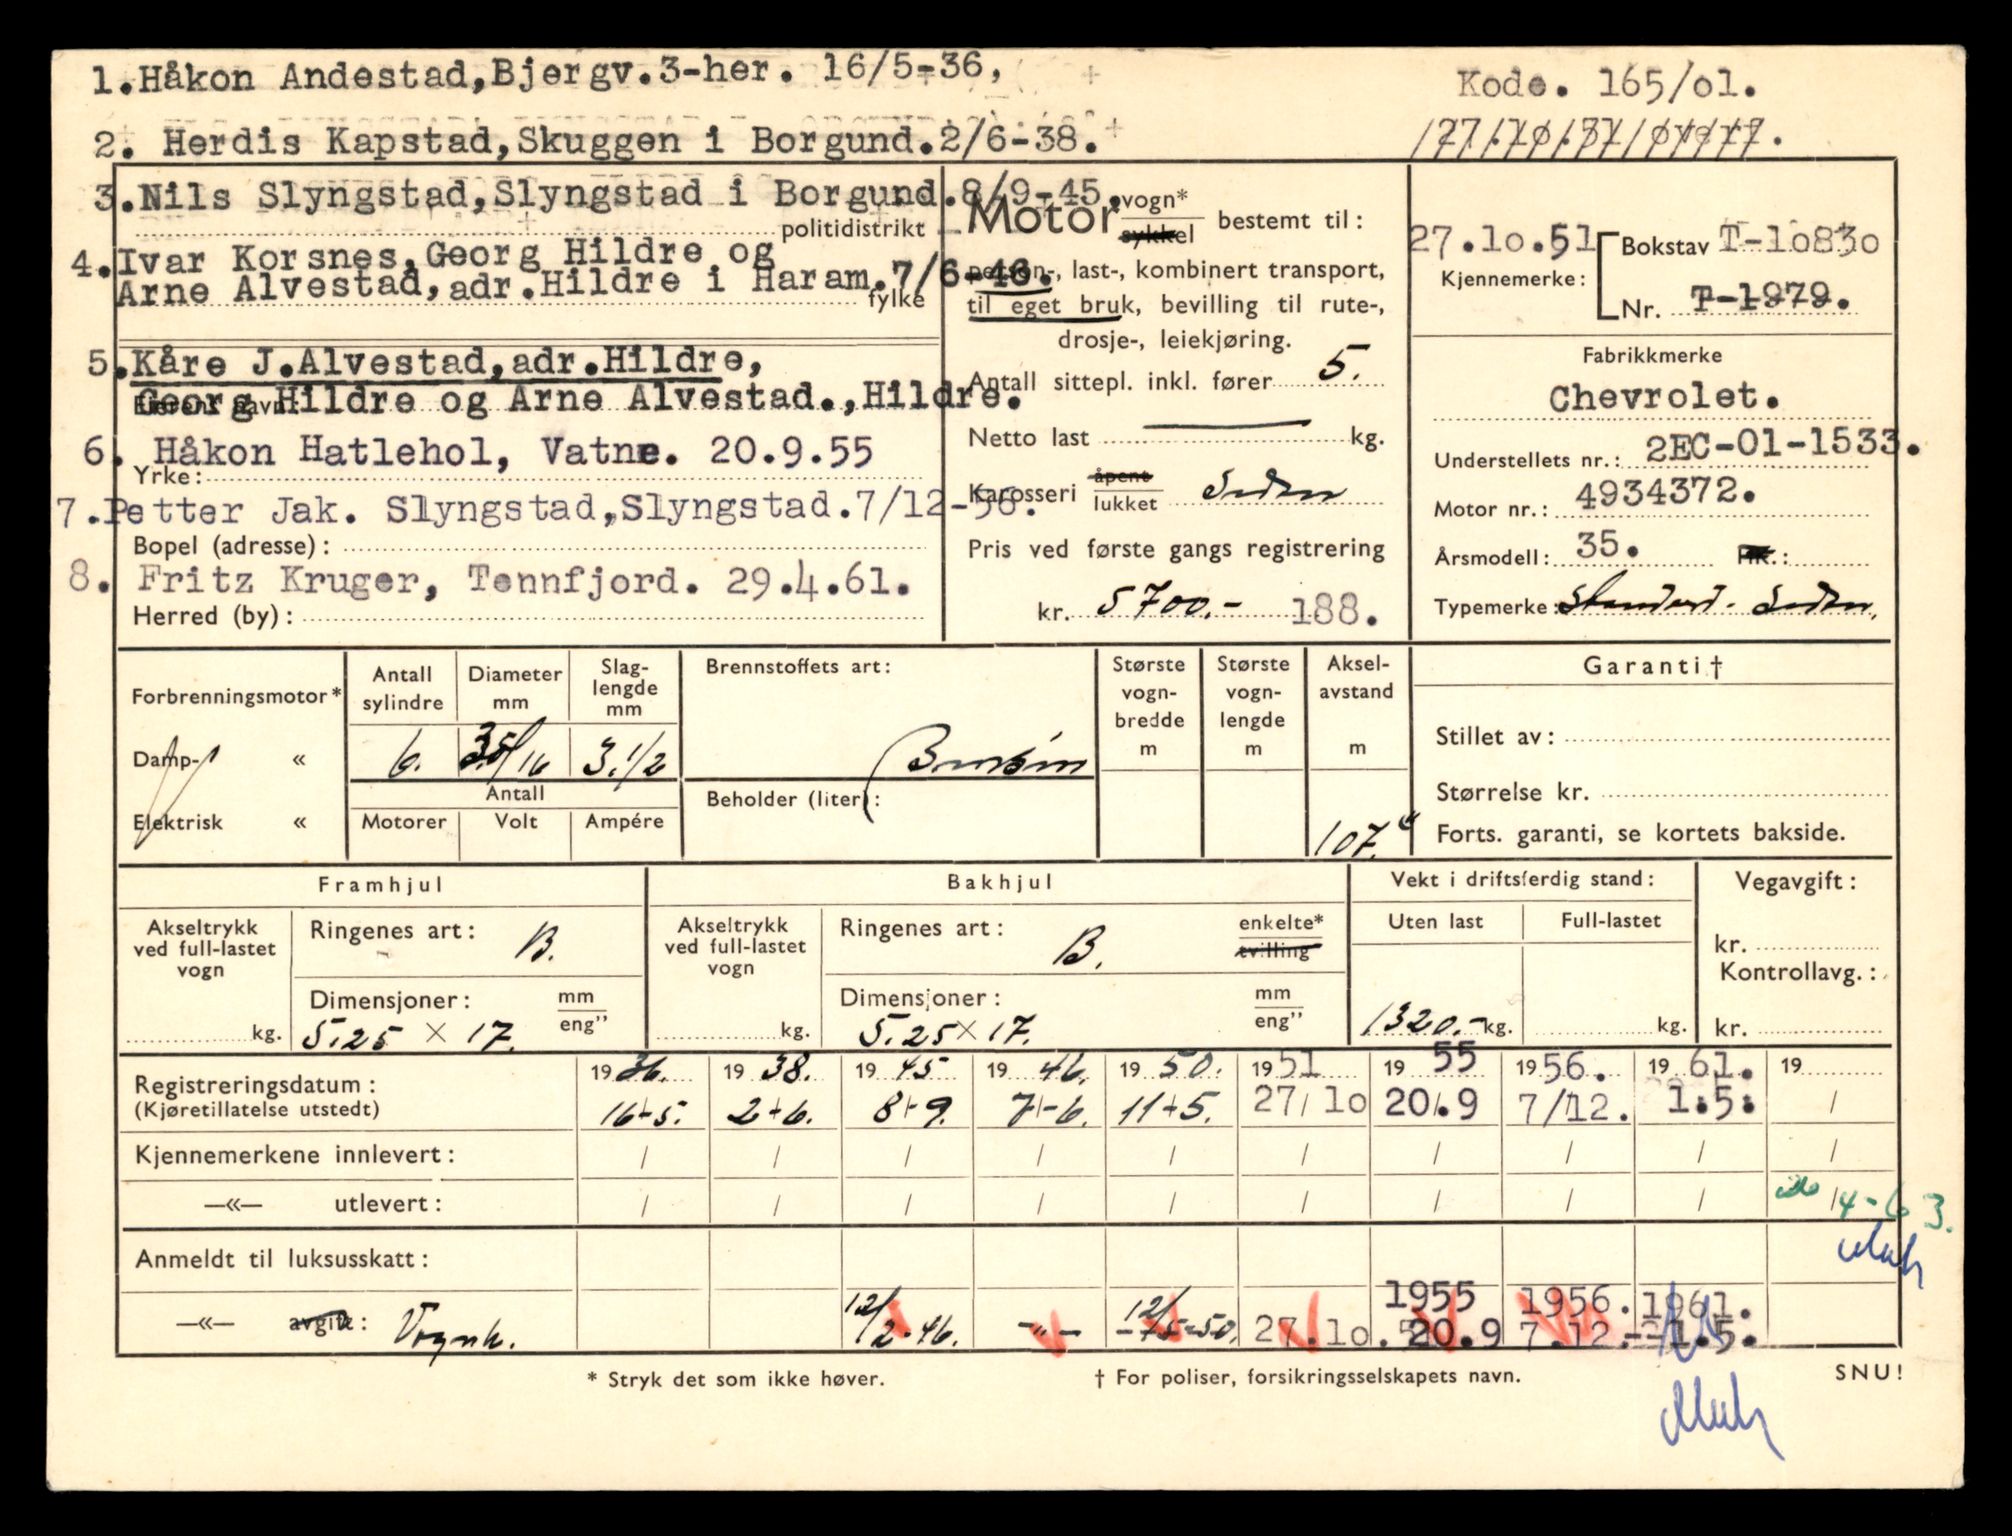 1.Håkon Andestad,Bjergv.3-her. 16/5-36,
Kode. 165/o1.
2. Herdis Kapstad,Skuggen i Borgund.2/6-38.
3.Nils Slyngstad,Slyngstad i Borgund.8/9-45.
politidistrikt
4.Ivar Korsnes,Georg Hildre og
Arne Alvestad,adr.Hildre i Haram.7/6-46.
fylke
5.Kåre J.Alvestad,adr.Hildre,
Georg Hildre og Arne Alvestad.,Hildre.
6. Håkon Hatlehol, Vatne. 20.9.55
Yrke:
7.Petter Jak. Slyngstad,Slyngstad.7/12-56.
Bopel (adresse):
8. Fritz Kruger, Tennfjord. 29.4.61.
Herred (by):
Motor vogn* sykkel bestemt til:
person-, last-, kombinert transport,
til eget bruk, bevilling til rute-,
drosje-, leiekjøring.
Antall sittepl. inkl. fører 5.
Netto last — kg.
Karosseri åpent lukket Sedan
Pris ved første gangs registrering
kr. 5700.- 188.
27.1o.51
Kjennemerke:
Bokstav T-1o83o
Nr. T-1979.
Fabrikkmerke
Chevrolet.
Understellets nr.: 2EC-01-1533.
Motor nr.: 4934372.
Årsmodell: 35. HK.:
Typemerke: Standard. Sedan.
Forbrenningsmotor*
Damp- «
Elektrisk «
Antall sylindre 6.
Diameter mm
Slaglengde mm 3.1/2
Antall
Motorer Volt Ampére
Brennstoffets art:
Bensin
Beholder (liter):
Største vognbredde m
Største vognlengde m
Akselavstand m
107."
Garanti†
Stillet av:
Størrelse kr.
Forts. garanti, se kortets bakside.
Framhjul
Akseltrykk ved full-lastet vogn
kg.
Ringenes art: B.
Dimensjoner: mm eng”
5.25 × 17.
Bakhjul
Akseltrykk ved full-lastet vogn
kg.
Ringenes art: B. enkelte* tvilling
Dimensjoner: mm eng”
5.25 × 17.
Vekt i driftsferdig stand:
Uten last Full-lastet
1320.- kg. kg.
Vegavgift:
kr.
Kontrollavg.:
kr.
Registreringsdatum: 1936. 1938. 1945 1946. 1950. 1951 1955 1956. 1961. 19
(Kjøretillatelse utstedt) 16/-5. 2/-6. 8/-9. 7/-6. 11/-5. 27/10 20/.9 7/12. 1.5. /
Kjennemerkene innlevert: / / / / / / / / / /
—«— utlevert: / / / / / / / / / 14-63.
Anmeldt til luksusskatt:
1955 1956. 1961.
—«— avgift: Vognk. 12/2-46. -"- 12/-5-50. 27.10.51 20.9 7.12.- 1.5.
* Stryk det som ikke høver.
† For poliser, forsikringsselskapets navn.
SNU!